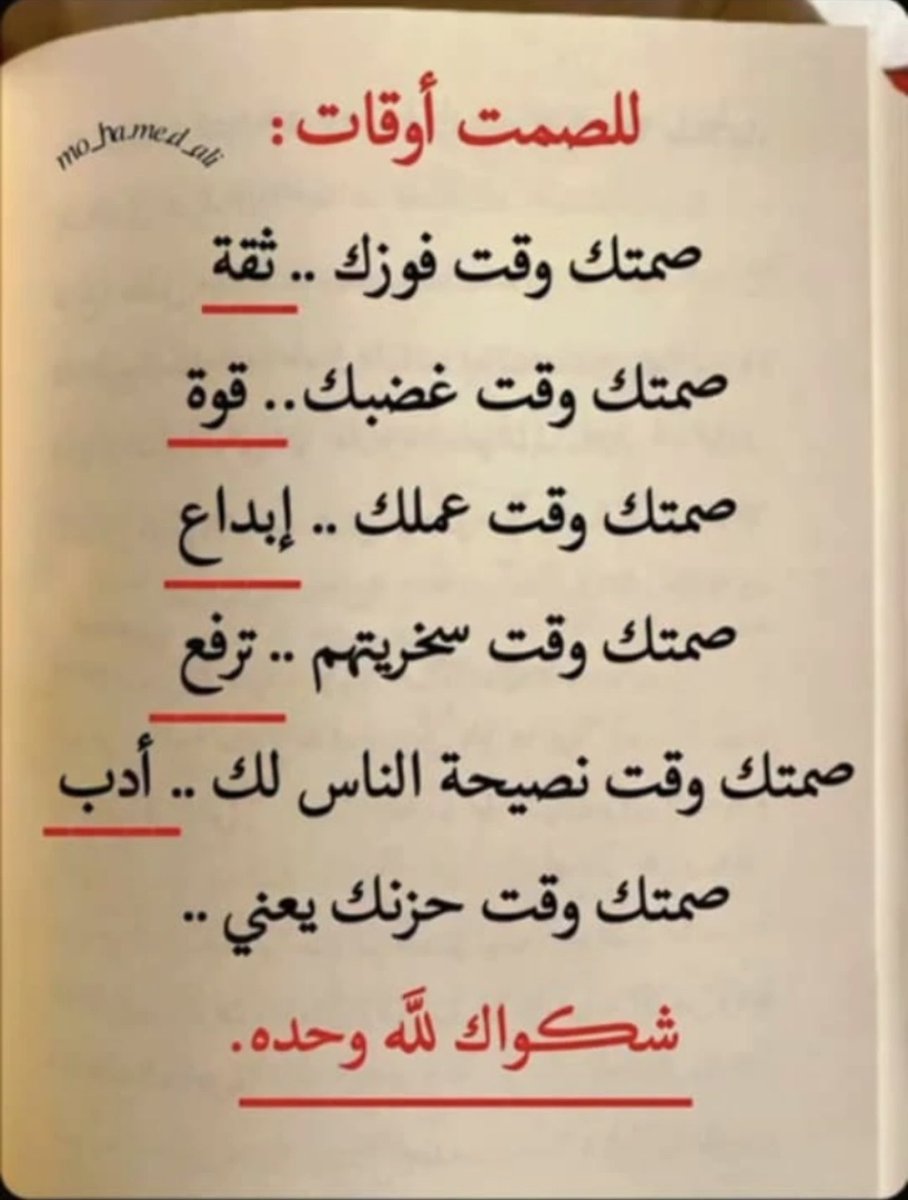 للصمت أوقات :
mo_ha.me.d_ali
صمتك وقت فوزك .. ثقة
صمتك وقت غضبك .. قوة
صمتك وقت عملك .. إبداع
صمتك وقت سخريتهم .. ترفع
صمتك وقت نصيحة الناس لك .. أدب
صمتك وقت حزنك يعني ..
شكواك للَّه وحده.